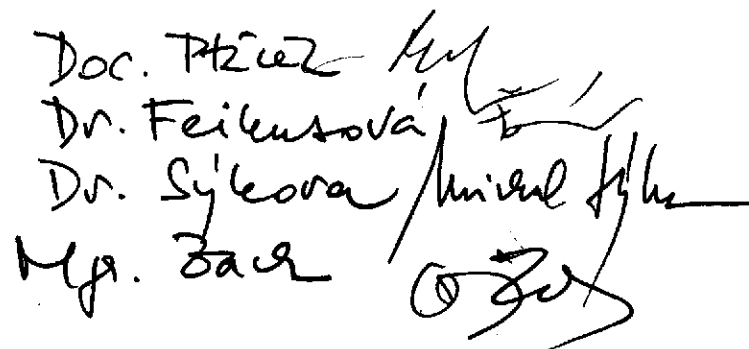 Doc. Ptáček
Dr. Feikusová
Dr. Sýkora Michal Sýkora
Mgr. Bach